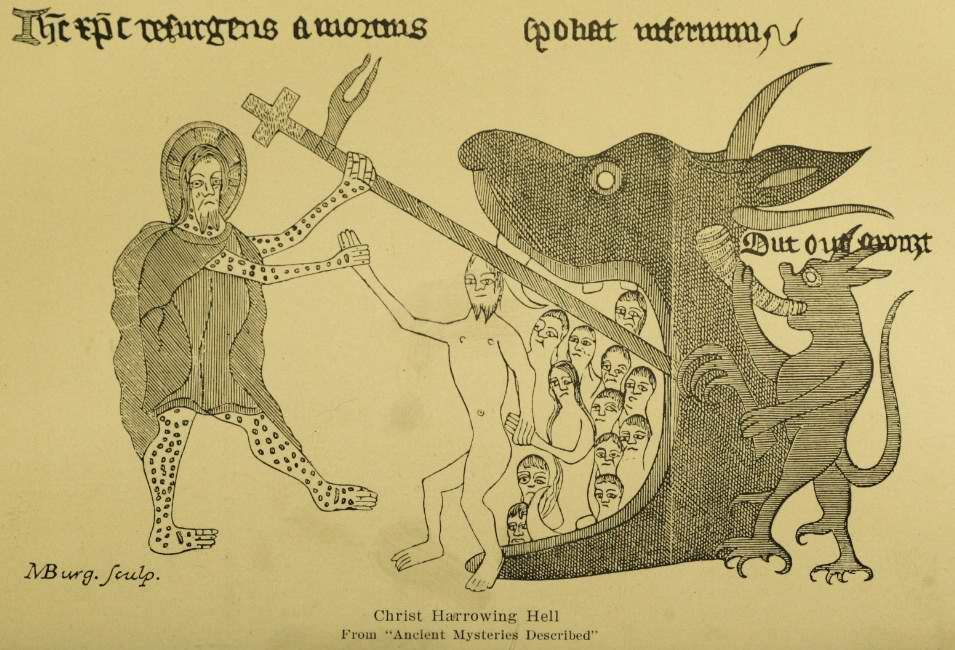 Ihc xpc resurgens a mortuis spoliat infernum
Out out aronzt
MBurg. sculp.
Christ Harrowing Hell
From "Ancient Mysteries Described"